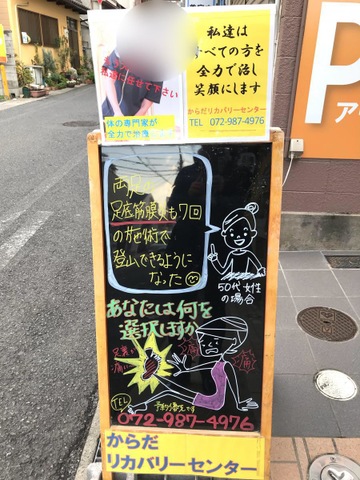 私達は
すべての方を
全力で治し
笑顔にします
からだリカバリーセンター
TEL 072-987-4976
私達に任せて下さい
体の専門家が
全力で治療
両足
足底筋膜炎も7回
の施術で
登山できるように
なった
50代女性
の場合
あなたは何を
選択しますか
足裏
痛
痛
痛
TEL
予約優先です
072-987-4976
からだ
リカバリーセンター
P
ア